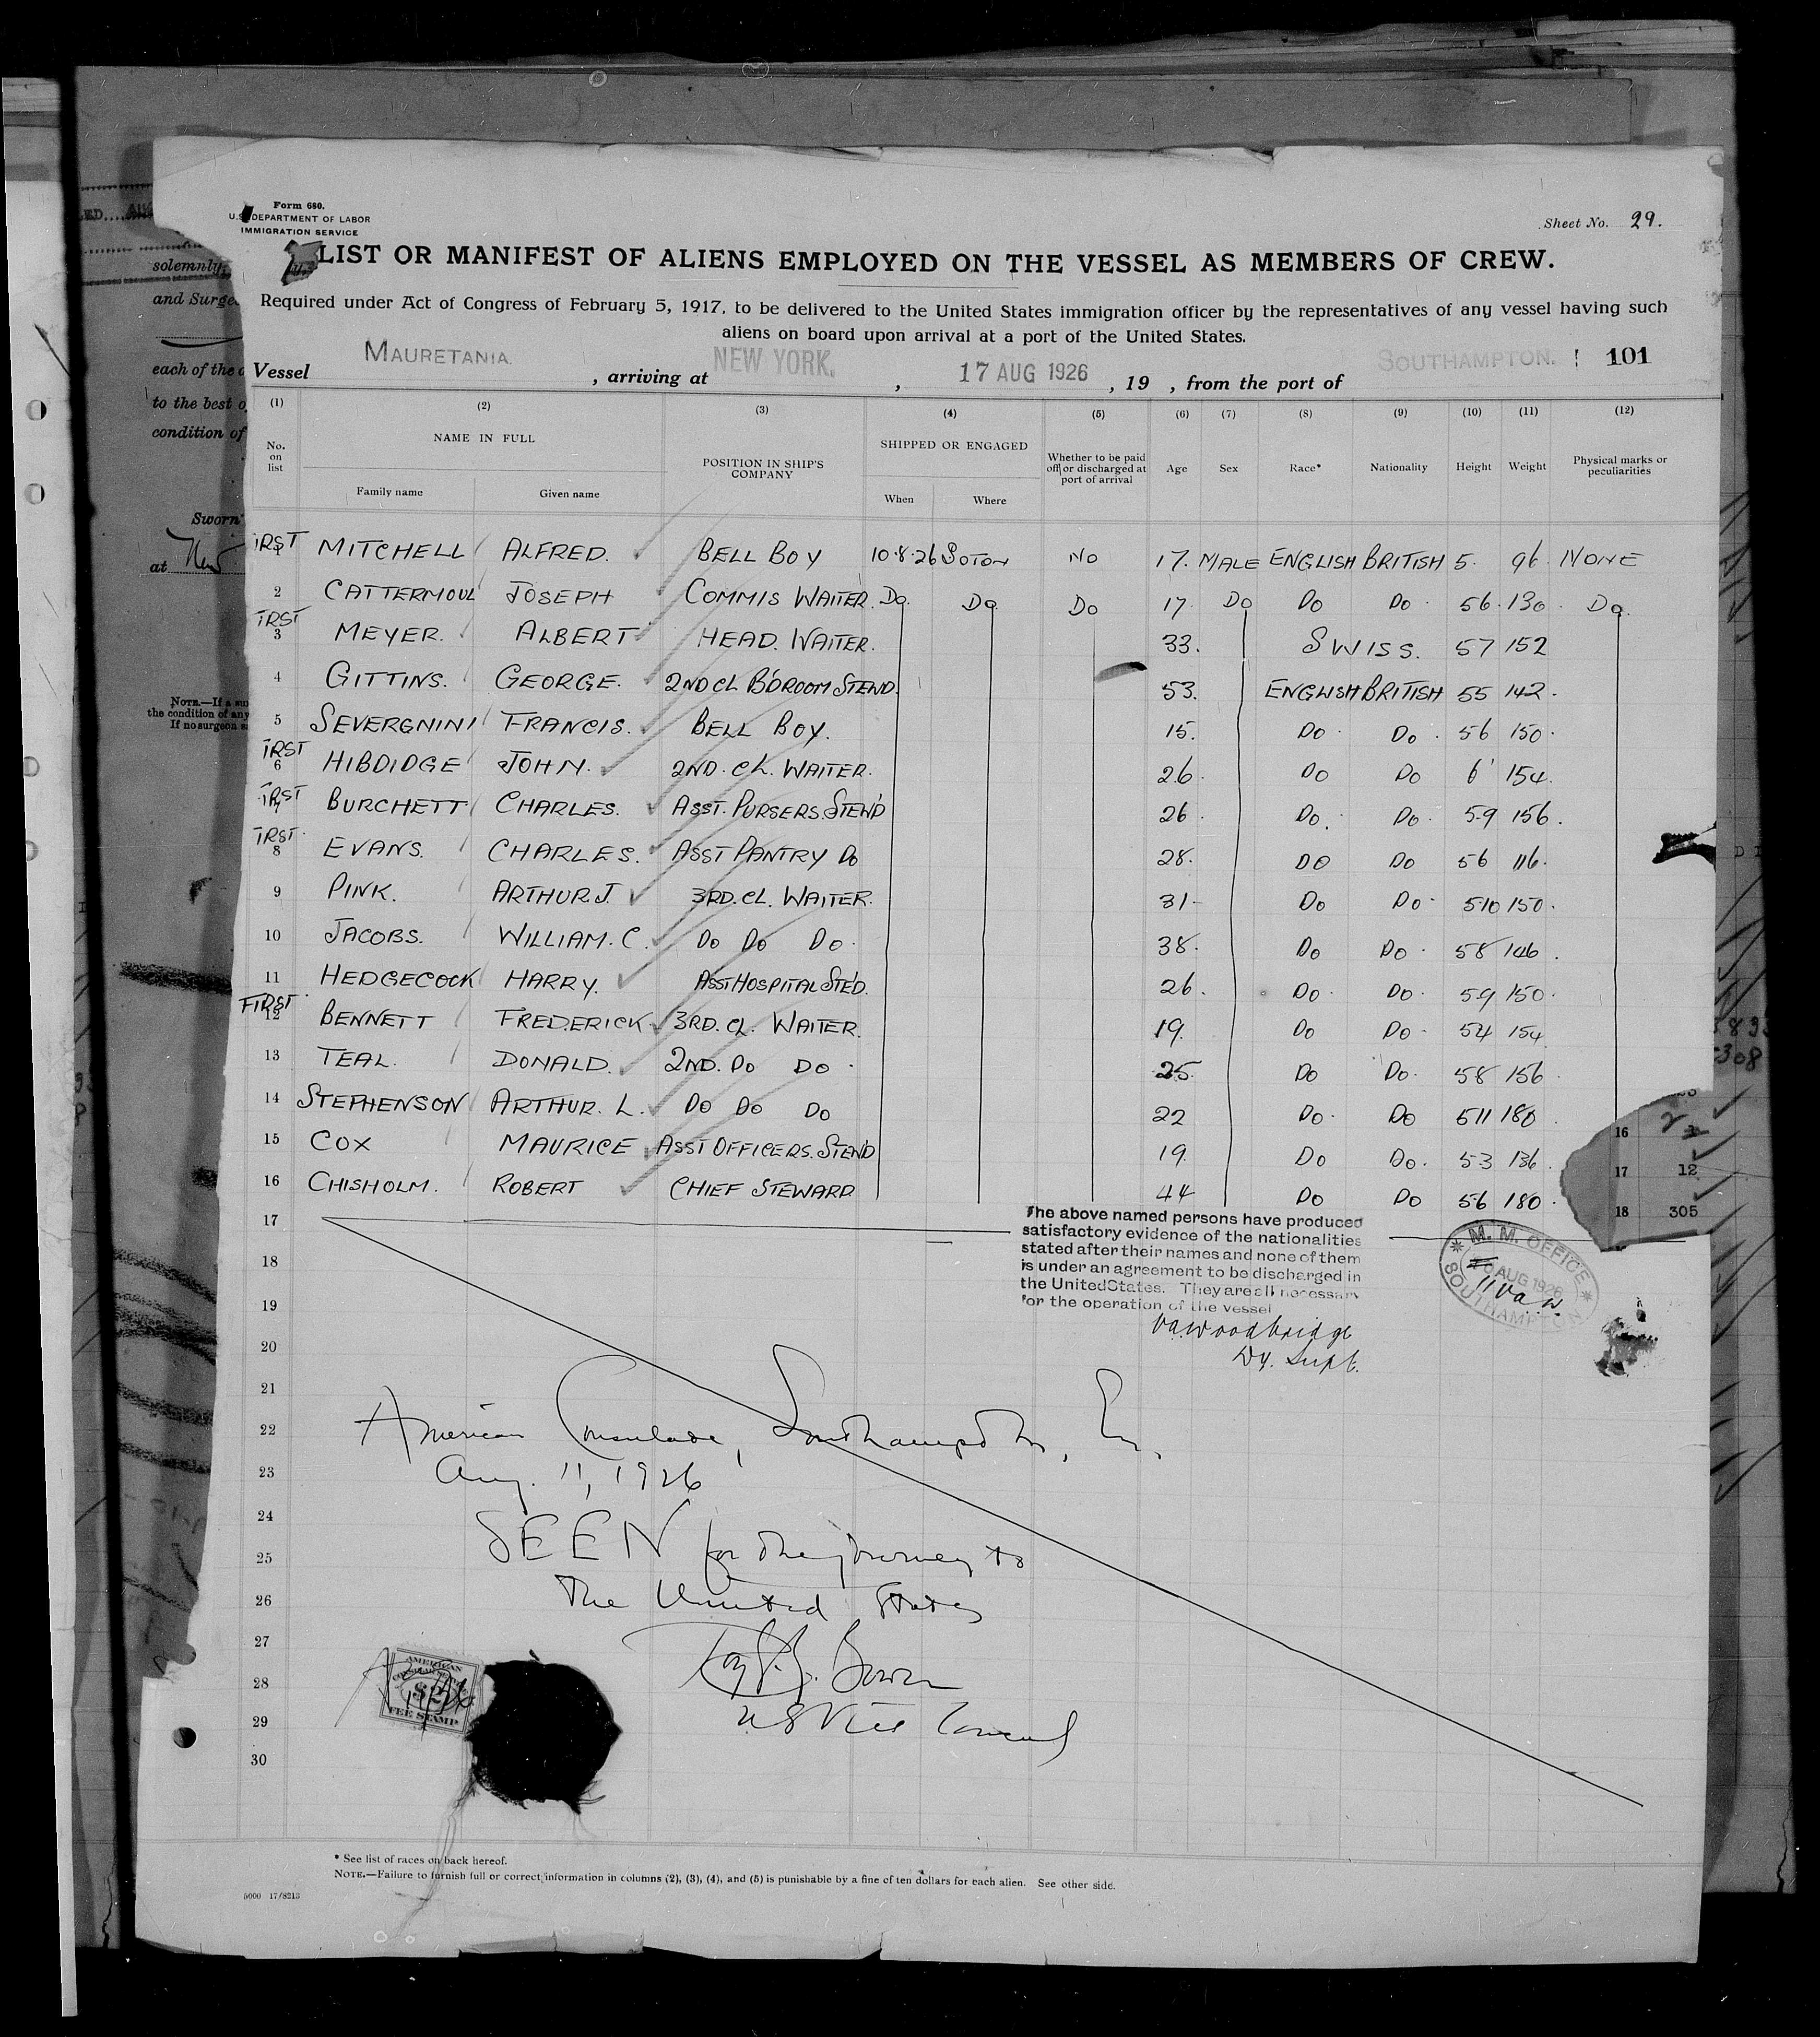 Form 680.
U.S. DEPARTMENT OF LABOR
IMMIGRATION SERVICE
Sheet No. 29.
LIST OR MANIFEST OF ALIENS EMPLOYED ON THE VESSEL AS MEMBERS OF CREW.
Required under Act of Congress of February 5, 1917, to be delivered to the United States immigration officer by the representatives of any vessel having such
aliens on board upon arrival at a port of the United States.
Vessel MAURETANIA. , arriving at NEW YORK. , 17 AUG 1926 , 19 , from the port of SOUTHAMPTON. 101
(1) (2) (3) (4) (5) (6) (7) (8) (9) (10) (11) (12)
No. on list NAME IN FULL Family name Given name POSITION IN SHIP'S COMPANY SHIPPED OR ENGAGED When Where Whether to be paid off or discharged at port of arrival Age Sex Race* Nationality Height Weight Physical marks or peculiarities
IRST 1 MITCHELL ALFRED. BELL BOY 10.8.26 SOTON NO 17. MALE ENGLISH BRITISH 5. 96. NONE
2 CATTERMOUL JOSEPH COMMIS WAITER. DO. DO DO 17. DO DO DO. 56. 130. DO.
IRST 3 MEYER. ALBERT HEAD. WAITER. 33. SWISS. 57 152
4 GITTINS. GEORGE. 2ND CL B'DROOM STEWD. 53. ENGLISH BRITISH 55 142.
5 SEVERGNINI FRANCIS. BELL BOY. 15. DO. DO. 56 150.
IRST 6 HIBDIDGE JOHN. 2ND. CL. WAITER. 26. DO DO 6' 154.
IRST 7 BURCHETT CHARLES. ASST. PURSERS. STEW'D 26. DO. DO. 59 156.
IRST 8 EVANS. CHARLES. ASST PANTRY DO 28. DO DO 56 116.
9 PINK. ARTHUR J. 3RD. CL. WAITER. 31- DO DO. 510 150.
10 JACOBS. WILLIAM. C. DO DO DO. 38. DO DO. 58 146.
11 HEDGECOCK HARRY. ASST HOSPITAL STED. 26. DO. DO. 59 150.
FIRST 12 BENNETT FREDERICK 3RD. CL. WAITER. 19. DO DO. 54 154
13 TEAL. DONALD. 2ND. DO DO. 25 DO DO. 58 156
14 STEPHENSON ARTHUR. L. DO DO DO 22 DO. DO 511 180.
15 COX MAURICE ASST OFFICERS. STEWD 19. DO DO. 53 136.
16 CHISHOLM. ROBERT CHIEF STEWARD 44 DO DO 56 180.
17
The above named persons have produced
satisfactory evidence of the nationalities
stated after their names and none of them
is under an agreement to be discharged in
the United States. They are all necessary
for the operation of the vessel
VAWoodbridge
Dy. Supt.
M. M. OFFICE
AUG 1926
11 VaW.
SOUTHAMPTON
18
19
20
21
22 American Consulate, Southampton, En.
23 Aug. 11, 1926
24
25 SEEN for the journey to
26 the United States
27
28
29 US Vice Consul
30
AMERICAN
CONSULAR SERVICE
$2
FEE STAMP
* See list of races on back hereof.
NOTE.—Failure to furnish full or correct information in columns (2), (3), (4), and (5) is punishable by a fine of ten dollars for each alien. See other side.
5000 17/8213
solemnly,
and Surge
each of the
to the best o
condition of
Sworn
at New
NOTE.—If a su
the condition of any
If no surgeon s
16
17 12
18 305
308